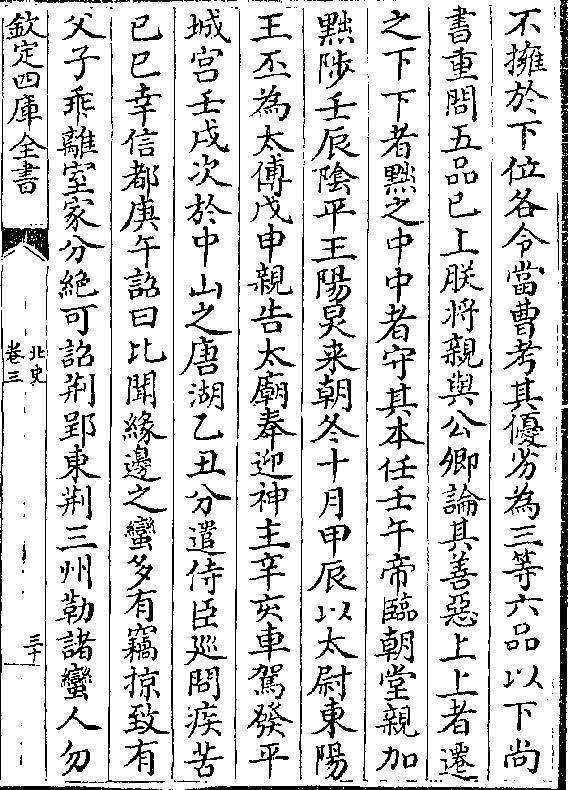 不擁於下位各令當曹考其優劣為三等六品以下尚
書重問五品已上朕將親與公卿論其善惡上上者遷
之下下者黜之中中者守其本任壬午帝臨朝堂親加
黜陟壬辰陰平王陽炅来朝冬十月甲辰以太尉東陽
王丕為太傅戊申親告太廟奉迎神主辛亥車駕發平
城宮壬戌次於中山之唐湖乙丑分遣侍臣廵問疾苦
已巳幸信都庚午詔曰比聞緣邊之蠻多有竊掠致有
父子乖離室家分絶可詔荆郢東荆三州勒諸蠻人勿
欽定四庫全書
北史
卷三
三十